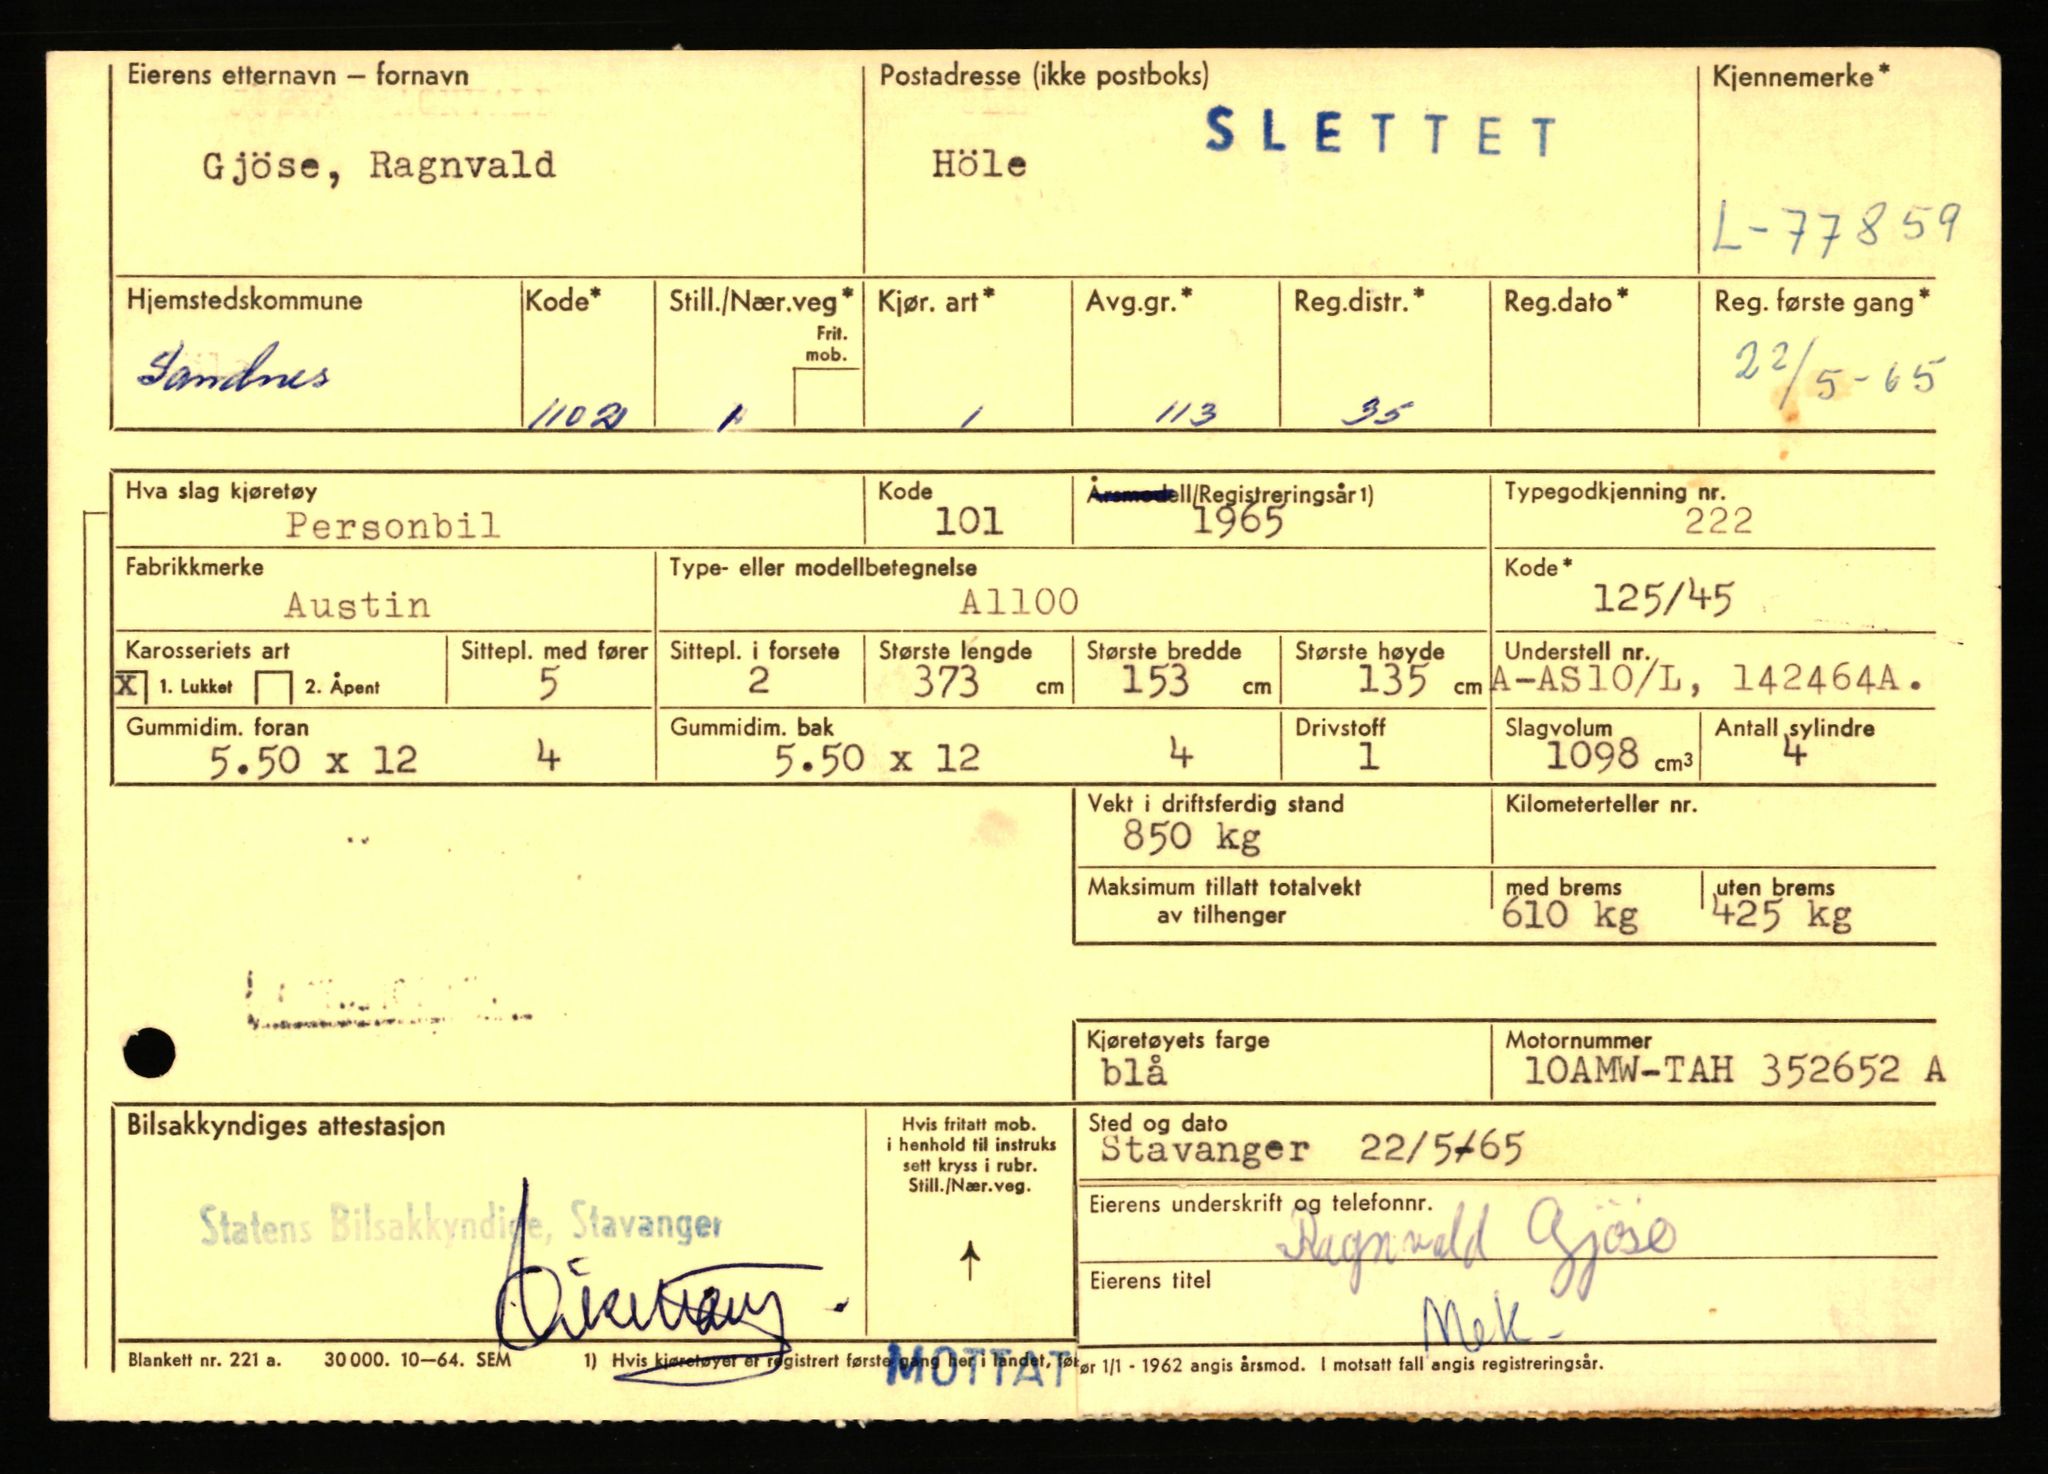 Eierens etternavn – fornavn Postadresse (ikke postboks) Kjennemerke*
SLETTET
Gjöse, Ragnvald Höle
L-77859
Hjemstedskommune Kode* Still./Nær.veg* Kjør. art* Avg.gr.* Reg.distr.* Reg.dato* Reg. første gang*
Frit.
mob.
Sandnes 22/5-65
1102 1 1 113 35
Hva slag kjøretøy Kode Årsmodell/Registreringsår1) Typegodkjenning nr.
Personbil 101 1965 222
Fabrikkmerke Type- eller modellbetegnelse Kode*
Austin A1100 125/45
Karosseriets art Sittepl. med fører Sittepl. i forsete Største lengde Største bredde Største høyde Understell nr.
X 1. Lukket 2. Åpent 5 2 373 cm 153 cm 135 cm A-AS10/L, 142464A.
Gummidim. foran Gummidim. bak Drivstoff Slagvolum Antall sylindre
5.50 x 12 4 5.50 x 12 4 1 1098 cm3 4
Vekt i driftsferdig stand Kilometerteller nr.
850 kg
Maksimum tillatt totalvekt med brems uten brems
av tilhenger 610 kg 425 kg
Kjøretøyets farge Motornummer
blå 10AMW-TAH 352652 A
Bilsakkyndiges attestasjon Hvis fritatt mob.
i henhold til instruks
sett kryss i rubr.
Still./Nær.veg.
Sted og dato
Stavanger 22/5-65
Statens Bilsakkyndige, Stavanger
Eierens underskrift og telefonnr.
Ragnvald Gjöse
Eierens titel
Mek-
Blankett nr. 221 a. 30000. 10–64. SEM 1) Hvis kjøretøyet er registrert første gang her i landet, før 1/1 - 1962 angis årsmod. I motsatt fall angis registreringsår.
MOTTAT